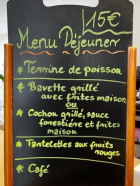 15€
Menu Déjeuner
* Terrine de poisson
* Bavette grillé
avec frites maison
ou
* Cochon grillé, sauce
forestière et frites
maison
* Tartelettes aux fruits
rouges
* Café